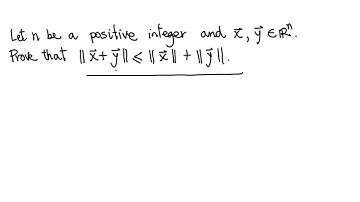 Let n be a positive integer and x⃗, y⃗ ∈ ℝⁿ.
Prove that ‖x⃗ + y⃗‖ ⩽ ‖x⃗‖ + ‖y⃗‖.